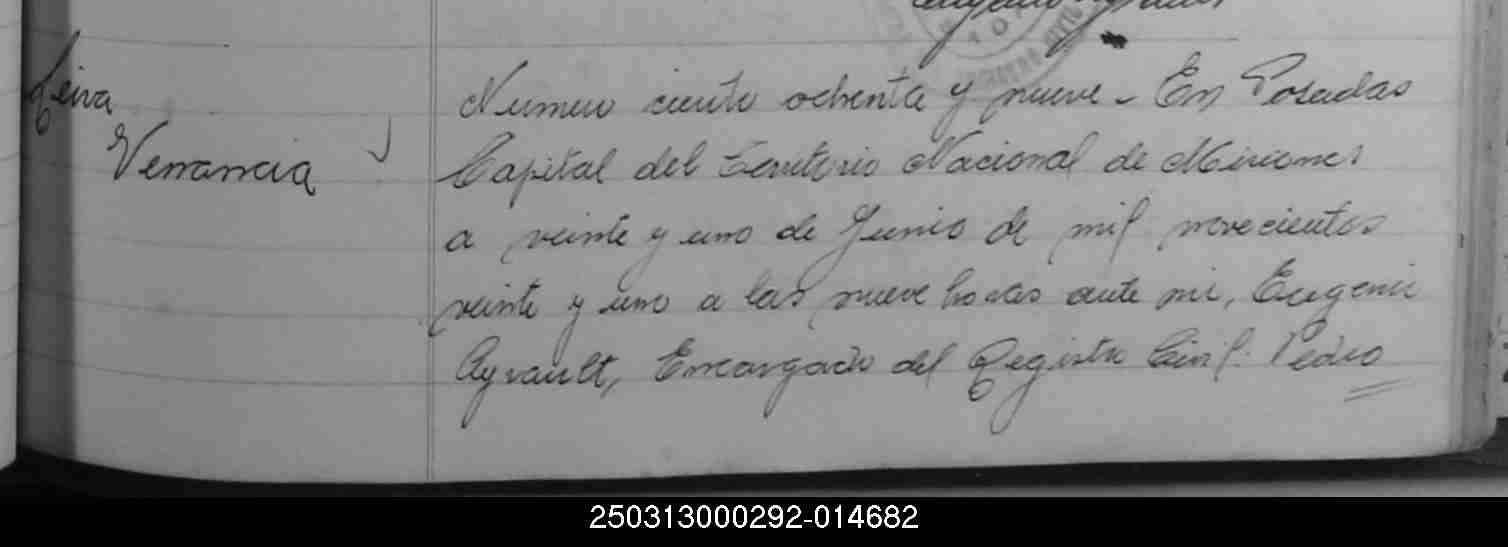 Leiva
Venancia
Numero ciento ochenta y nueve - En Posadas
Capital del Territorio Nacional de Misiones
a veinte y uno de Junio de mil novecientos
veinte y uno a las nueve horas ante mi, Eugenio
Ayrault, Encargado del Registro Civil. Pedro
250313000292-014682